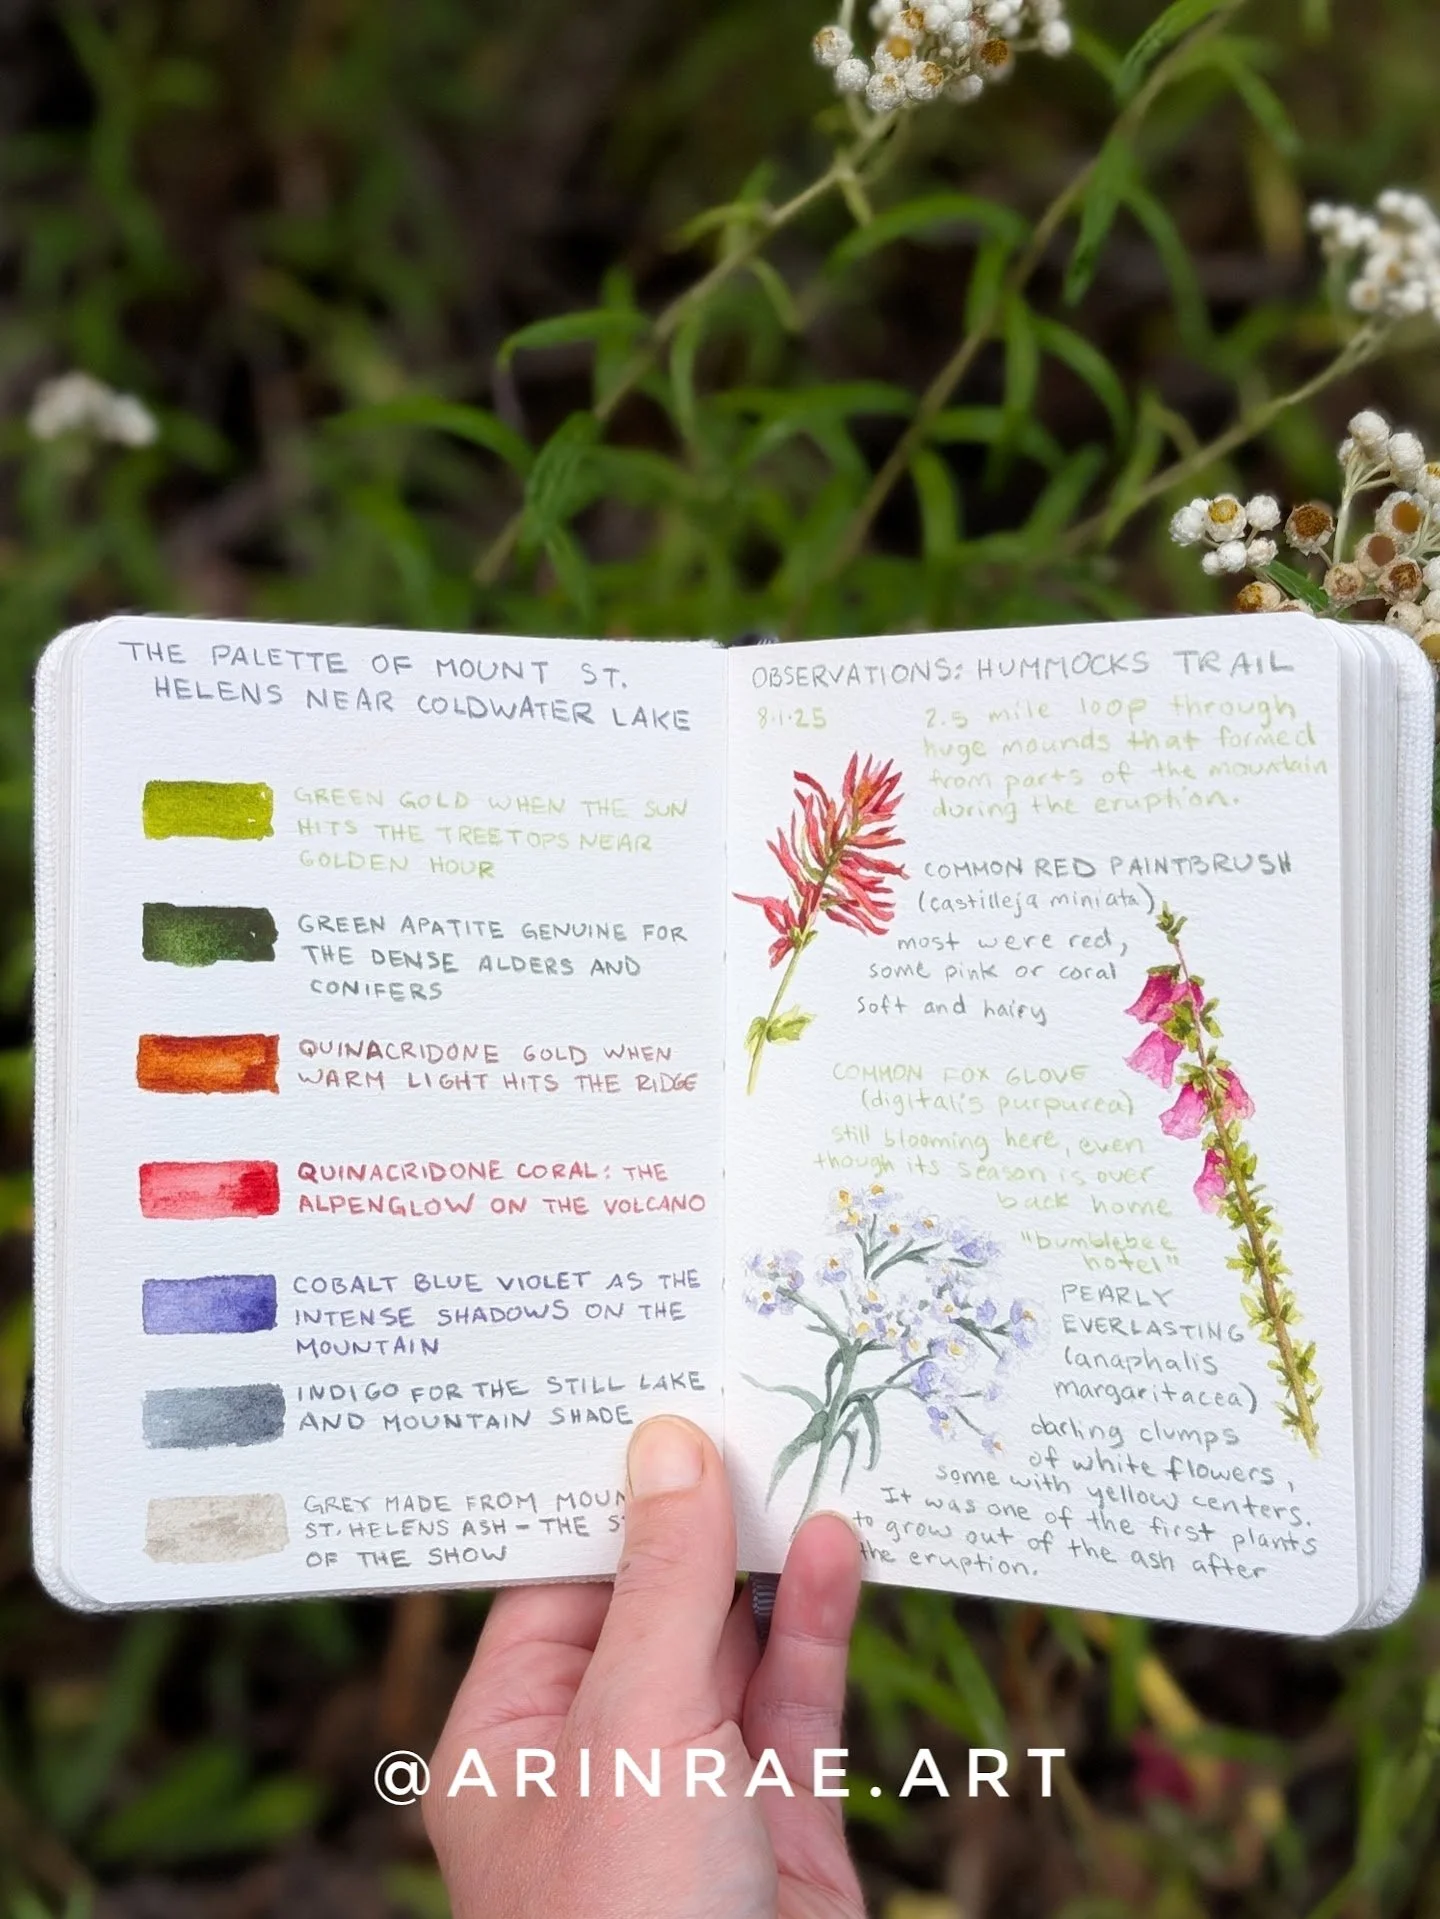 THE PALETTE OF MOUNT ST.
HELENS NEAR COLDWATER LAKE
GREEN GOLD WHEN THE SUN
HITS THE TREETOPS NEAR
GOLDEN HOUR
GREEN APATITE GENUINE FOR
THE DENSE ALDERS AND
CONIFERS
QUINACRIDONE GOLD WHEN
WARM LIGHT HITS THE RIDGE
QUINACRIDONE CORAL: THE
ALPENGLOW ON THE VOLCANO
COBALT BLUE VIOLET AS THE
INTENSE SHADOWS ON THE
MOUNTAIN
INDIGO FOR THE STILL LAKE
AND MOUNTAIN SHADE
GREY MADE FROM
ST. HELENS ASH - THE
OF THE SHOW
OBSERVATIONS: HUMMOCKS TRAIL
8.1.25
2.5 mile loop through
huge mounds that formed
from parts of the mountain
during the eruption.
COMMON RED PAINTBRUSH
(castilleja miniata)
most were red,
some pink or coral
soft and hairy
COMMON FOX GLOVE
(digitalis purpurea)
still blooming here, even
though its season is over
back home
"bumblebee
hotel"
PEARLY
EVERLASTING
(anaphalis
margaritacea)
darling clumps
of white flowers,
some with yellow centers.
It was one of the first plants
to grow out of the ash after
the eruption.
@ARINRAE.ART